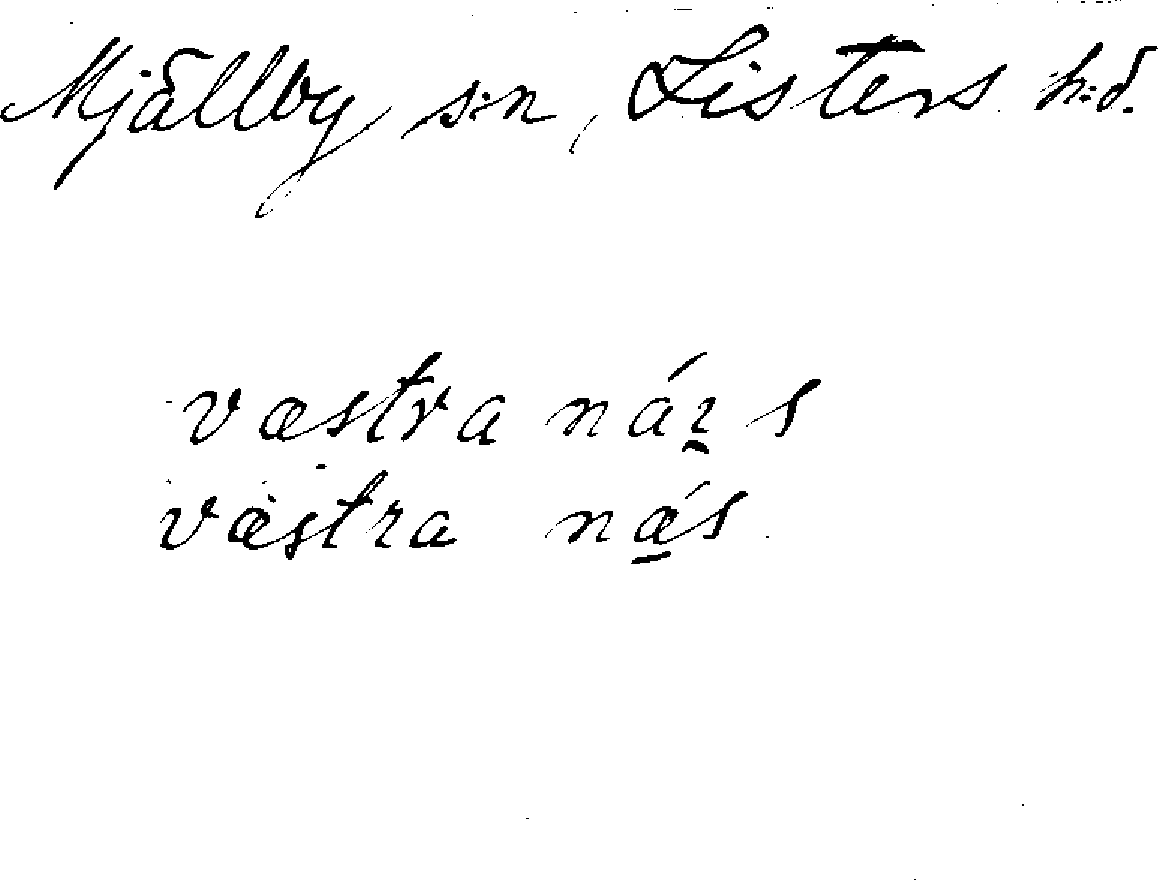 Mjällby s:n, Listers h:d.
västra náı̱s
västra nä́s